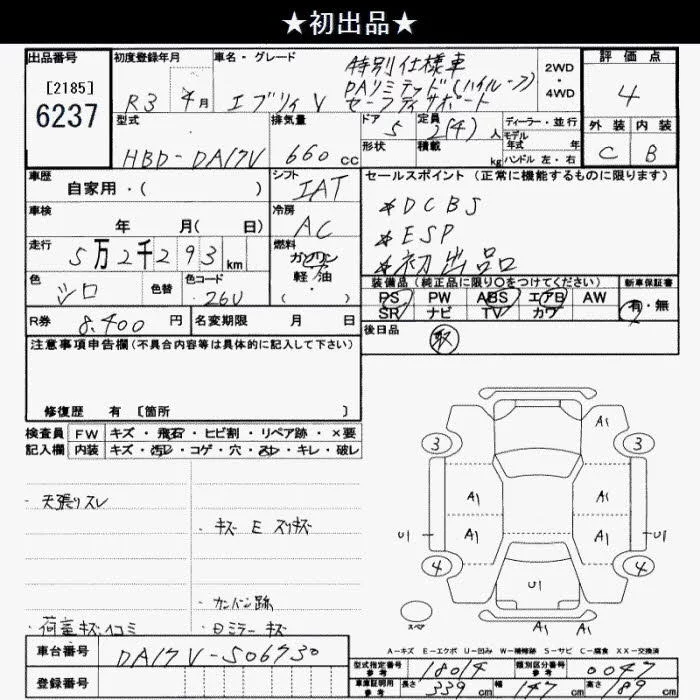 ★初出品★
出品番号
[2185]
6237
初度登録年月
R3 年 4月
車名・グレード
特別仕様車
エブリィV
PAリミテッド(ハイルーフ)
セーフティサポート
2WD
・
4WD
評価点
4
外装 内装
C B
型式
HBD-DA17V
排気量
660 cc
ドア
5
定員
2(4)人
形状
積載
kg
ディーラー・並行
モデル
年式 年
ハンドル 左・右
車歴
自家用・( )
シフト
IAT
セールスポイント (正常に機能するものに限ります)
*DCBS
*ESP
*初出品
車検
年 月( 日)
冷房
AC
走行
5万2千293 km
燃料
ガソリン
・
軽油
( )
色
シロ
色替
色コード
26U
装備品(純正品に限り○をつけてください)
PS PW ABS エアB AW
SR ナビ TV カワ
新車保証書
有・無
R券 8,400 円
名変期限 月 日
後日品
取
注意事項申告欄(不具合内容等は具体的に記入して下さい)
修復歴 有 [箇所 ]
検査員
記入欄
FW キズ・飛石・ヒビ割・リペア跡・×要
内装 キズ・汚レ・コゲ・穴・スレ・キレ・破レ
・天張りスレ
・キズ E スリキズ
・カンバン跡
・荷室キズ凹コミ
・Dミラーキズ
A1
3 3
A1 A1
U1 A1 A1 U1
4 4
U1
スペア
A1 A1
A-キズ E-エクボ U-凹み W-補修跡 S-サビ C-腐食 XX-交換済
車台番号 DA17V-506730
登録番号
型式指定番号
参考
18014
類別区分番号
参考
0047
車庫証明用
参考
長さ 339 cm 幅 147 cm 高さ 189 cm